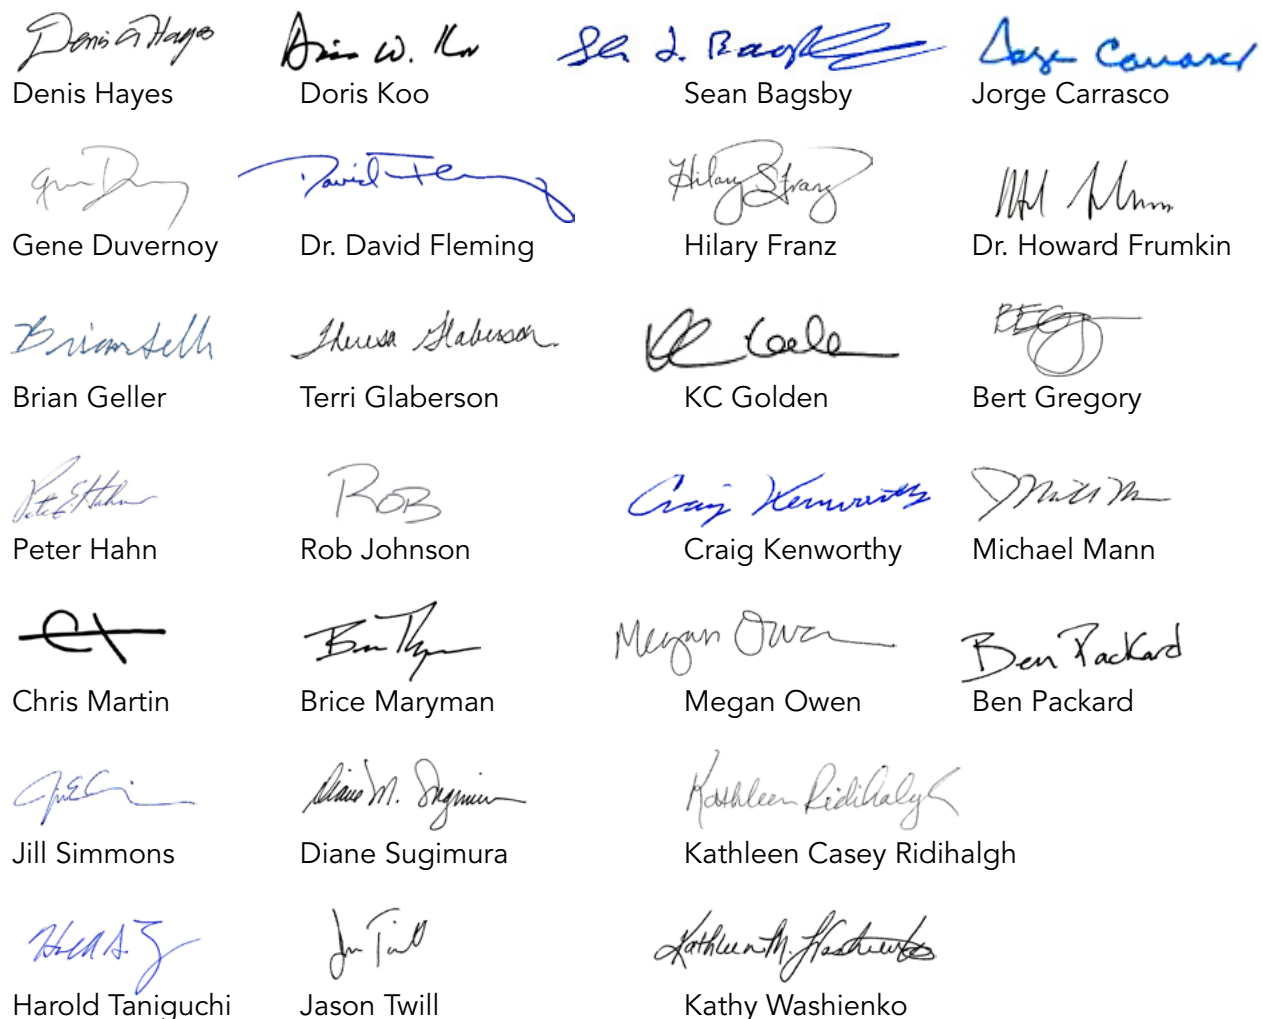 Denis A Hayes
Denis Hayes
Doris Koo
Sean Bagsby
Jorge Carrasco
Gene Duvernoy
David Fleming
Dr. David Fleming
Hilary S Franz
Hilary Franz
Dr. Howard Frumkin
Brian Geller
Theresa Glaberson
Terri Glaberson
KC Golden
Bert Gregory
Peter E. Hahn
Peter Hahn
ROB
Rob Johnson
Craig Kenworthy
Craig Kenworthy
Michael Mann
Chris Martin
Brice Maryman
Megan Owen
Megan Owen
Ben Packard
Ben Packard
Jill Simmons
Diane M. Sugimura
Diane Sugimura
Kathleen Ridihalgh
Kathleen Casey Ridihalgh
Harold Taniguchi
Jason Twill
Kathleen M. Washienko
Kathy Washienko